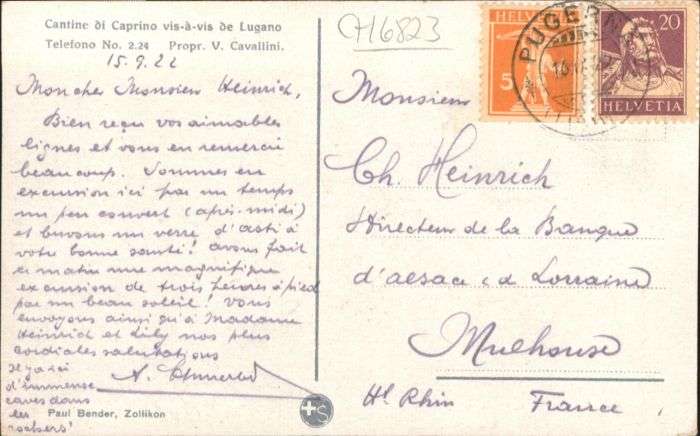 Cantine di Caprino vis-à-vis de Lugano
Telefono No. 2.24 Propr. V. Cavallini.
15.9.22
Mon cher Monsieur Heinrich,
Bien reçu vos aimables
lignes et vous en remercie
beaucoup. Sommes en
excursion ici par un temps
un peu couvert (après-midi)
et buvons un verre d'asti à
votre bonne santé! avons fait
ce matin une magnifique
excursion de trois heures à pied
par un beau soleil! Vous
envoyons ainsi qu'à Madame
Heinrich et Lily nos plus
cordiales salutations
Il y a ici
d'immenses
caves dans
les
rochers!
Paul Bender, Zollikon
CH16823
HELVETIA
5
20
HELVETIA
Monsieur
Ch. Heinrich
Directeur de la Banque
d'alsace & d Lorraine
Mulhouse
Ht Rhin France